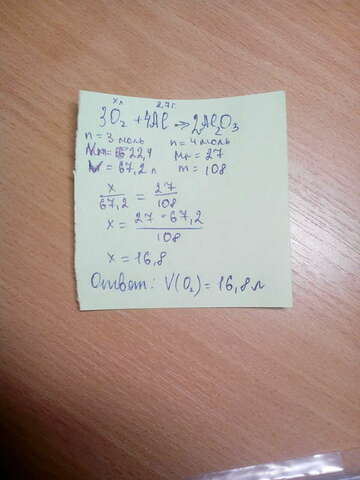 x л 2,7 г
3O₂ + 4Al → 2Al₂O₃
n = 3 моль n = 4 моль
Vm = 22,4 Mr = 27
V = 67,2 л m = 108
x/67,2 = 27/108
x = 27 · 67,2/108
x = 16,8
Ответ: V(O₂) = 16,8 л